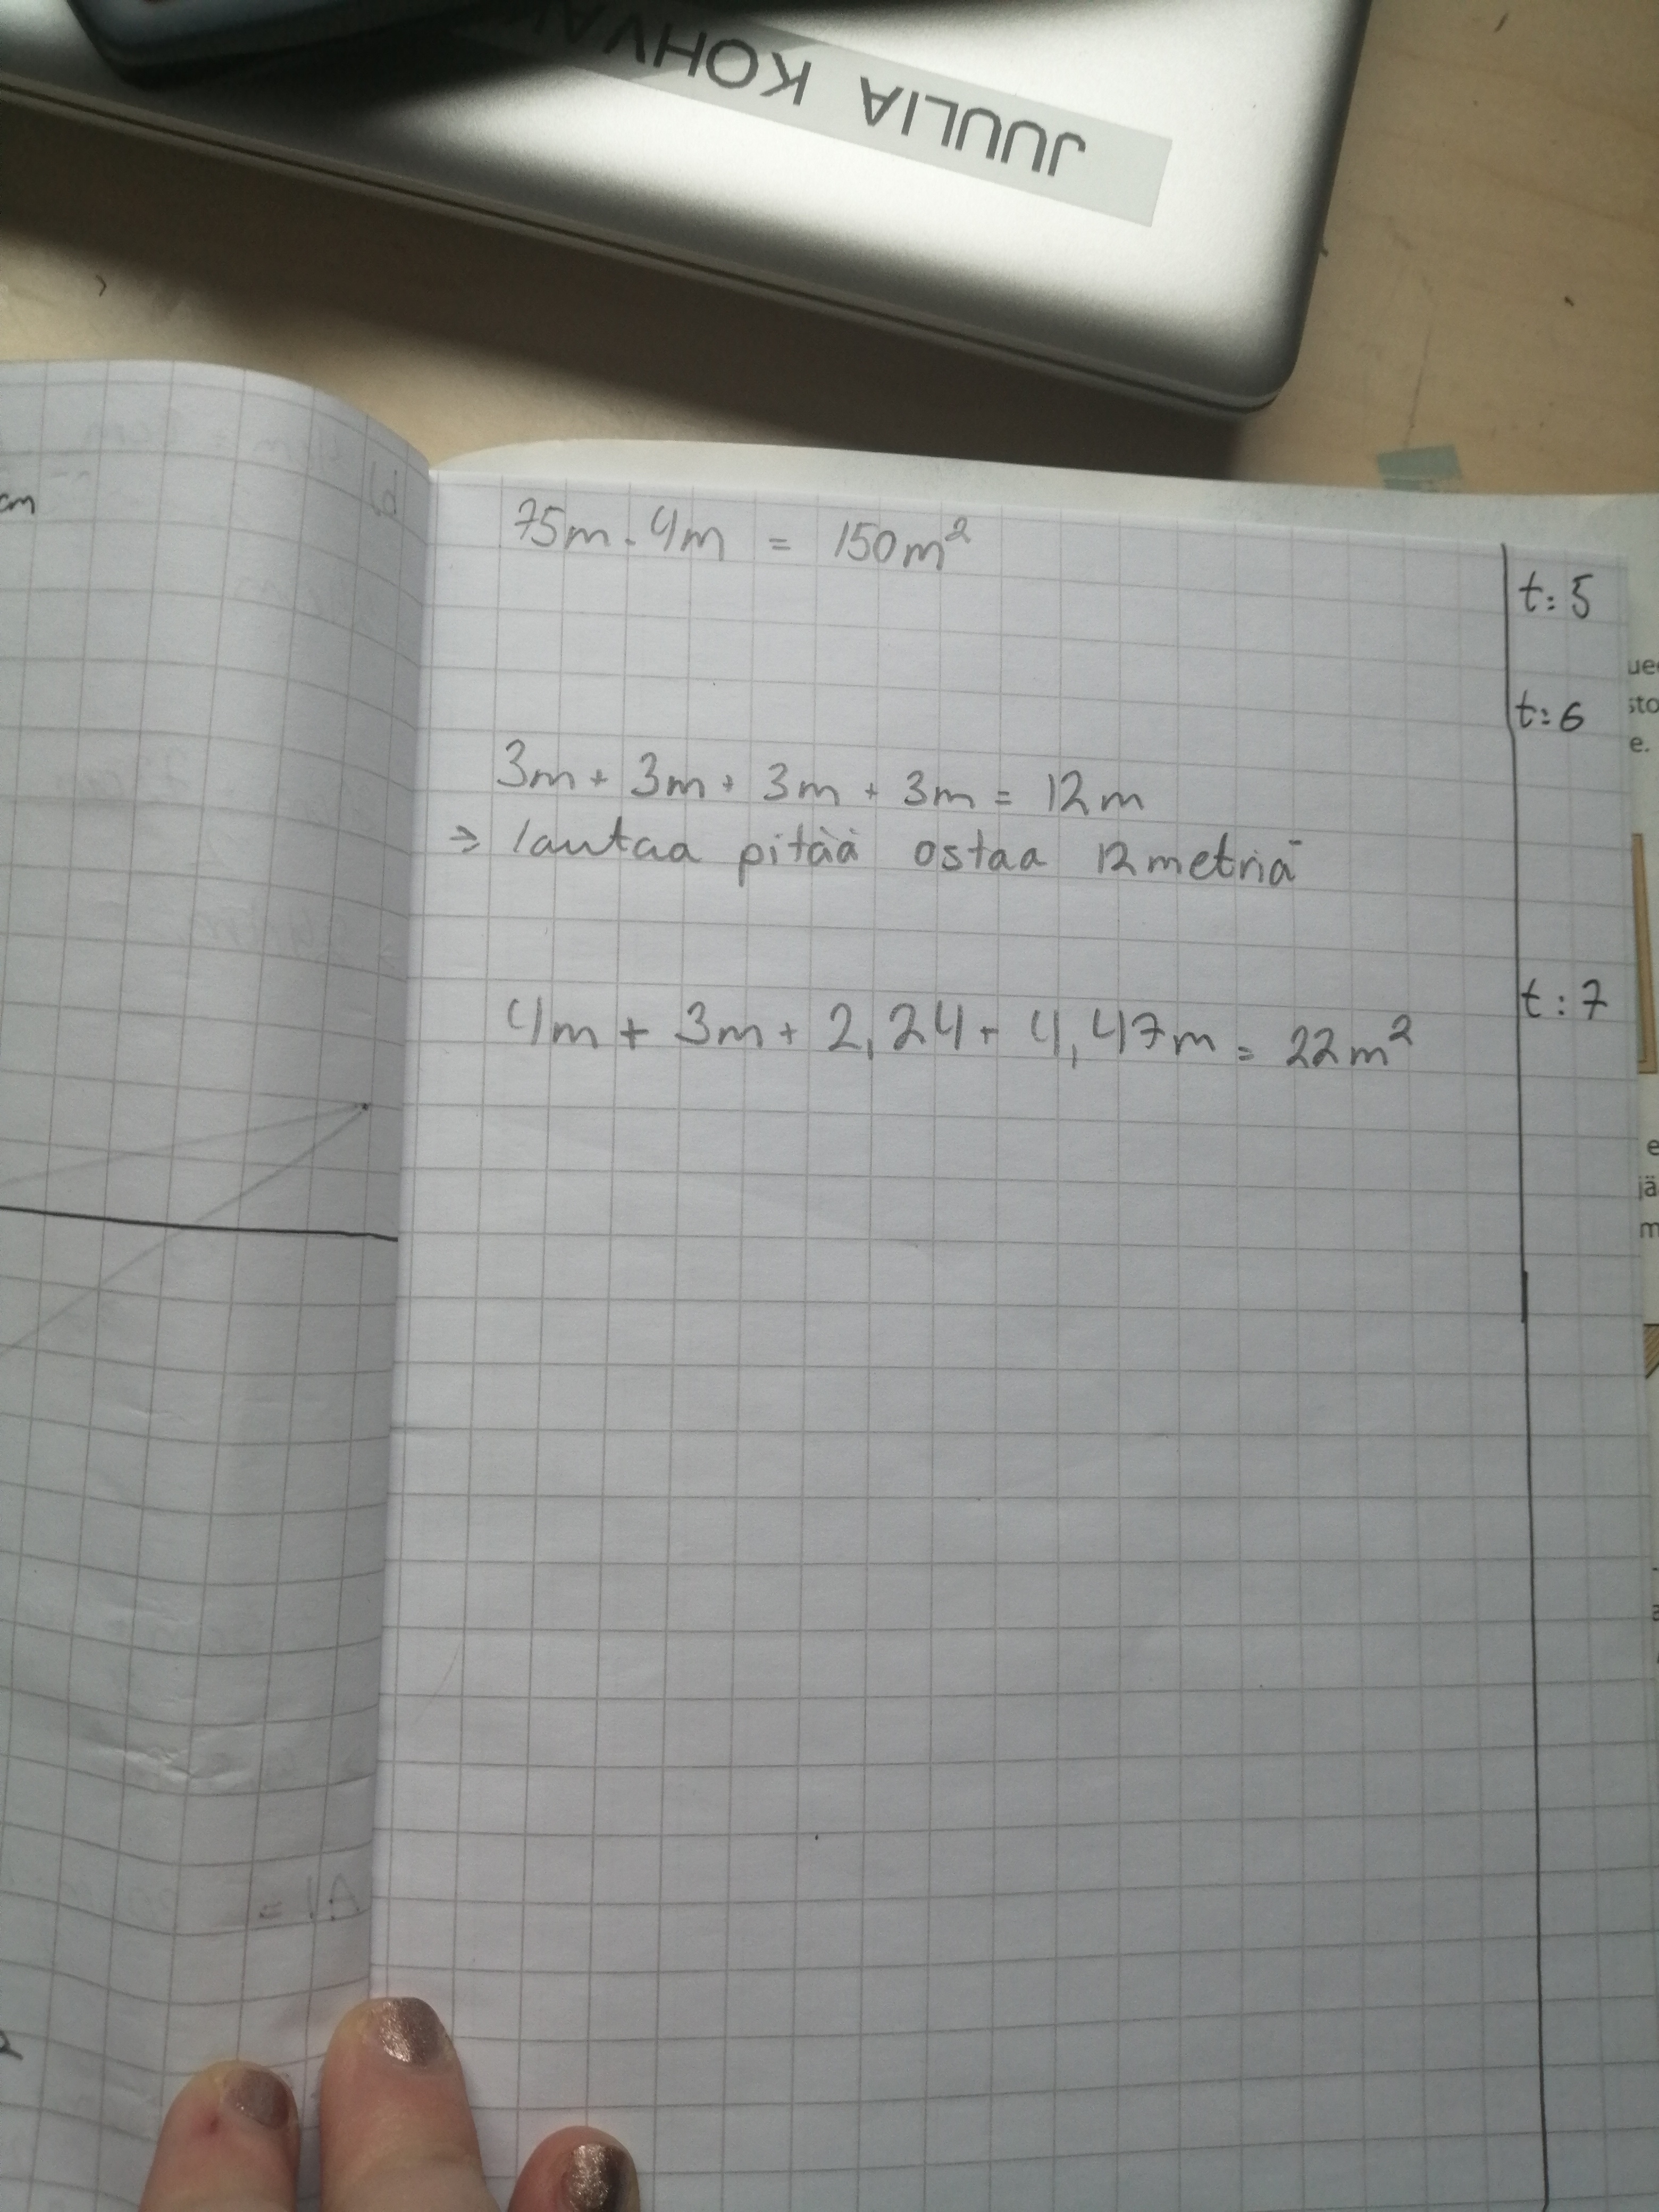 JUULIA
cm
75m · 4m = 150m²
t: 5
t: 6
3m + 3m + 3m + 3m = 12m
⇒ lautaa pitää ostaa 12 metriä
t: 7
4m + 3m + 2,24 + 4,47m = 22m²
e.